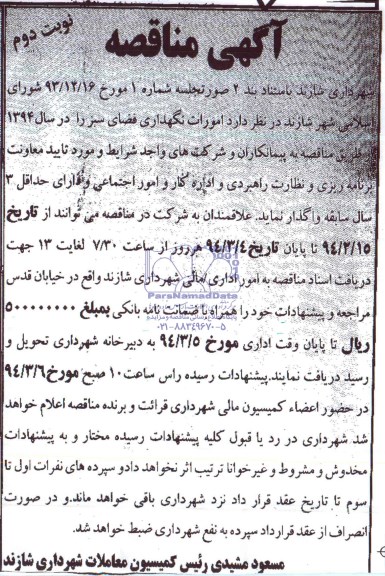 نوبت دوم
آگهی مناقصه
شهرداری شازند باستناد بند ۲ صورتجلسه شماره ۱ مورخ ۹۳/۱۲/۱۶ شورای
اسلامی شهر شازند در نظر دارد امورات نگهداری فضای سبز را در سال ۱۳۹۴
از طریق مناقصه به پیمانکاران و شرکت های واجد شرایط و مورد تایید معاونت
برنامه ریزی و نظارت راهبردی و اداره کار و امور اجتماعی و دارای حداقل ۳
سال سابقه واگذار نماید. علاقمندان به شرکت در مناقصه می توانند از تاریخ
۹۴/۲/۱۵ تا پایان تاریخ ۹۴/۳/۴ هرروز از ساعت ۷/۳۰ لغایت ۱۳ جهت
دریافت اسناد مناقصه به امور اداری/مالی شهرداری شازند واقع در خیابان قدس
مراجعه و پیشنهادات خود را همراه با ضمانت نامه بانکی بمبلغ ۵۰۰۰۰۰۰۰۰
ریال تا پایان وقت اداری مورخ ۹۴/۳/۵ به دبیرخانه شهرداری تحویل و
رسید دریافت نمایند.پیشنهادات رسیده راس ساعت ۱۰ صبح مورخ ۹۴/۳/۶
در حضور اعضاء کمیسیون مالی شهرداری قرائت و برنده مناقصه اعلام خواهد
شد شهرداری در رد یا قبول کلیه پیشنهادات رسیده مختار و به پیشنهادات
مخدوش و مشروط و غیرخوانا ترتیب اثر نخواهد دادو سپرده های نفرات اول تا
سوم تا تاریخ عقد قرار داد نزد شهرداری باقی خواهد ماند.و در صورت
انصراف از عقد قرارداد سپرده به نفع شهرداری ضبط خواهد شد.
مسعود مشیدی رئیس کمیسیون معاملات شهرداری شازند
ParsNamadData
۰۲۱-۸۸۳۴۹۶۷۰-۵